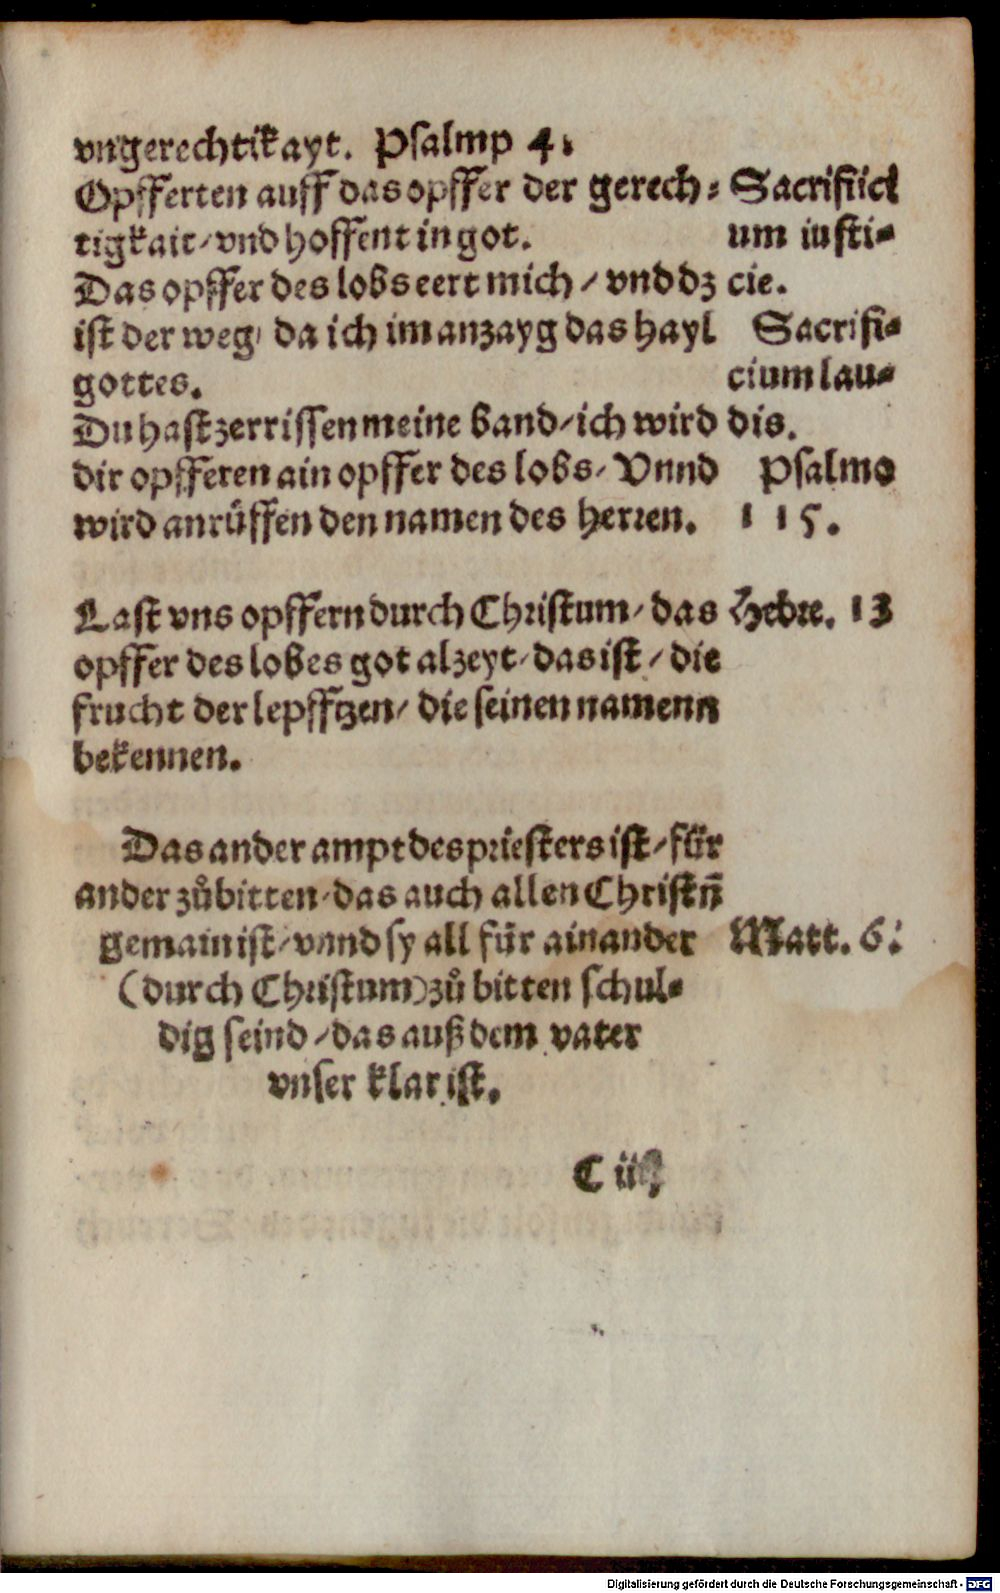 vngerechtikayt. Psalmp 4.
Opfferten auff das opffer der gerech-
tigkait/vnd hoffent in got.
Das opffer des lobs eert mich/vnd dz
ist der weg/da ich im anzayg das hayl
gottes.
Du hast zerrissen meine band/ich wird
dir opfferen ain opffer des lobs/Vnnd
wird anrůffen den namen des herren.
Sacrifici
um iusti-
cie.
Sacrifi-
cium lau-
dis.
Psalmo
115.
Last vns opffern durch Christum/das
opffer des lobes got alzeyt/das ist/die
frucht der lepfftzen/die seinen namenn
bekennen.
Hebre. 13
Das ander ampt des priesters ist/für
ander zůbitten/das auch allen Christñ
gemain ist/vnnd sy all für ainander
(durch Christum)zů bitten schul-
dig seind/das auß dem vater
vnser klar ist.
Matt. 6.
C iij
Digitalisierung gefördert durch die Deutsche Forschungsgemeinschaft - DFG